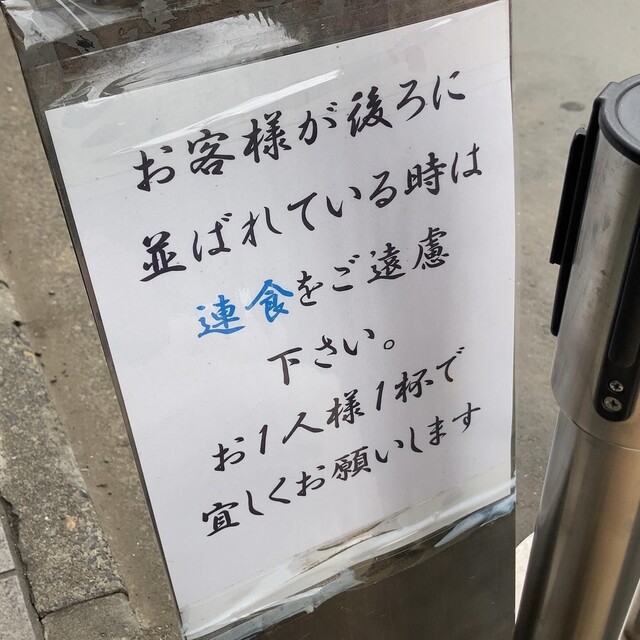 お客様が後ろに
並ばれている時は
連食をご遠慮
下さい。
お1人様1杯で
宜しくお願いします